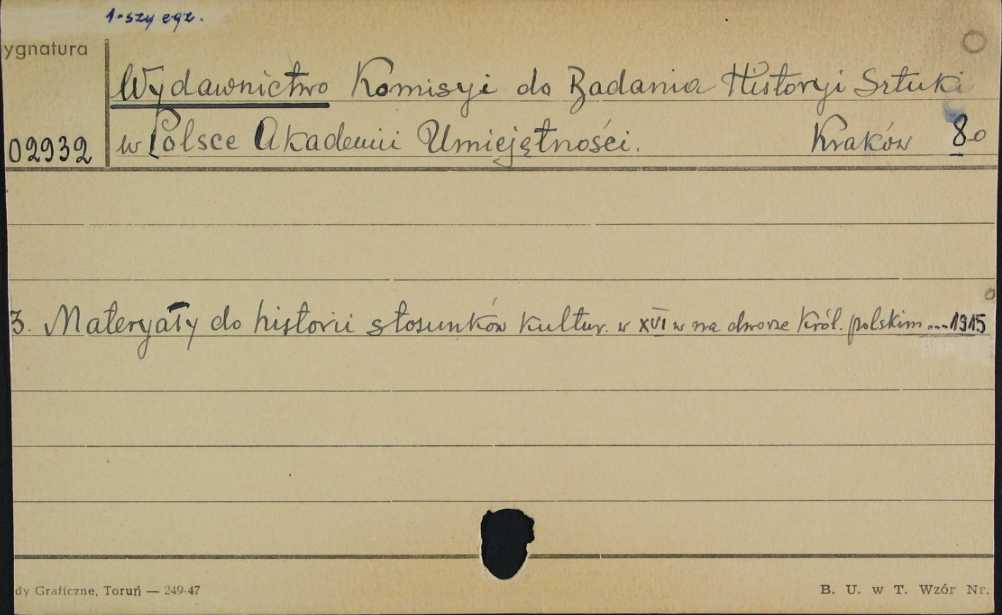 1-szy egz.
ygnatura
Wydawnictwo Komisyi do Badania Historyi Sztuki
02932 w Polsce Akademii Umiejętności. Kraków 8o
3. Materyały do historii stosunków kultur. w XVI w na dworze król. polskim ... 1915
dy Graficzne, Toruń — 249-47
B. U. w T. Wzór Nr.